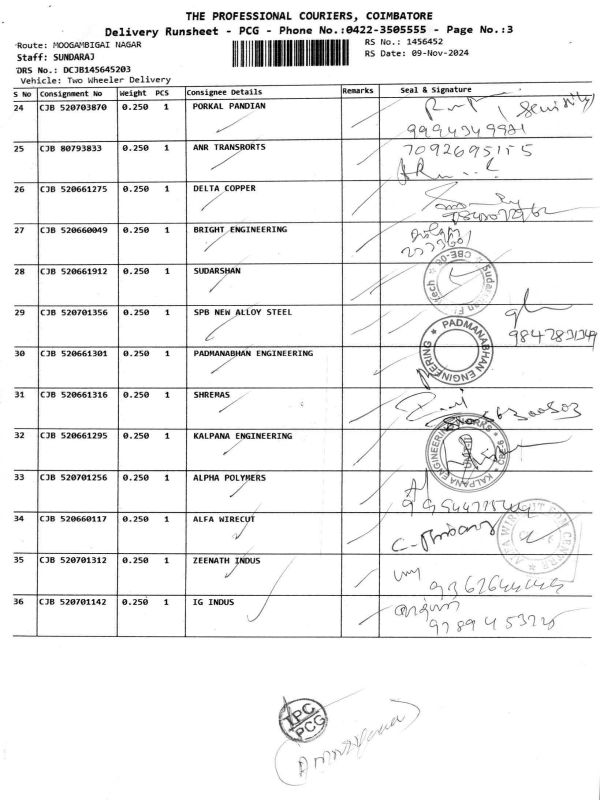 THE PROFESSIONAL COURIERS, COIMBATORE
Delivery Runsheet - PCG - Phone No.:0422-3505555 - Page No.:3
Route: MOOGAMBIGAI NAGAR
RS No.: 1456452
Staff: SUNDARAJ
RS Date: 09-Nov-2024
DRS No.: DCJB145645203
Vehicle: Two Wheeler Delivery
S No Consignment No Weight PCS Consignee Details Remarks Seal & Signature
24 CJB 520703870 0.250 1 PORKAL PANDIAN
25 CJB 80793833 0.250 1 ANR TRANSRORTS
7092695155
26 CJB 520661275 0.250 1 DELTA COPPER
27 CJB 520660049 0.250 1 BRIGHT ENGINEERING
28 CJB 520661912 0.250 1 SUDARSHAN
CBE-
29 CJB 520701356 0.250 1 SPB NEW ALLOY STEEL
30 CJB 520661301 0.250 1 PADMANABHAN ENGINEERING
PADMANABHAN ENGINEERING
31 CJB 520661316 0.250 1 SHREMAS
32 CJB 520661295 0.250 1 KALPANA ENGINEERING
KALPANA ENGINEERING WORKS
33 CJB 520701256 0.250 1 ALPHA POLYMERS
34 CJB 520660117 0.250 1 ALFA WIRECUT
35 CJB 520701312 0.250 1 ZEENATH INDUS
36 CJB 520701142 0.250 1 IG INDUS
TPC
PCG